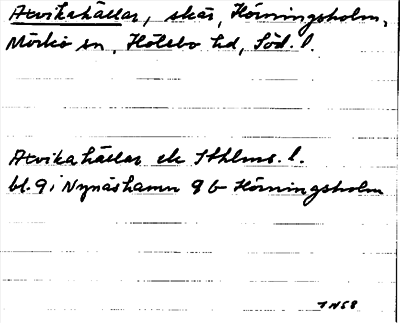 Alvikahällar, skär, Hörningsholm,
Mörkö sn, Hölebo hd, Söd. l.
Alvikahällar ek Sthlms. l.
bl. 9 i Nynäshamn 9 b Hörningsholm
1968